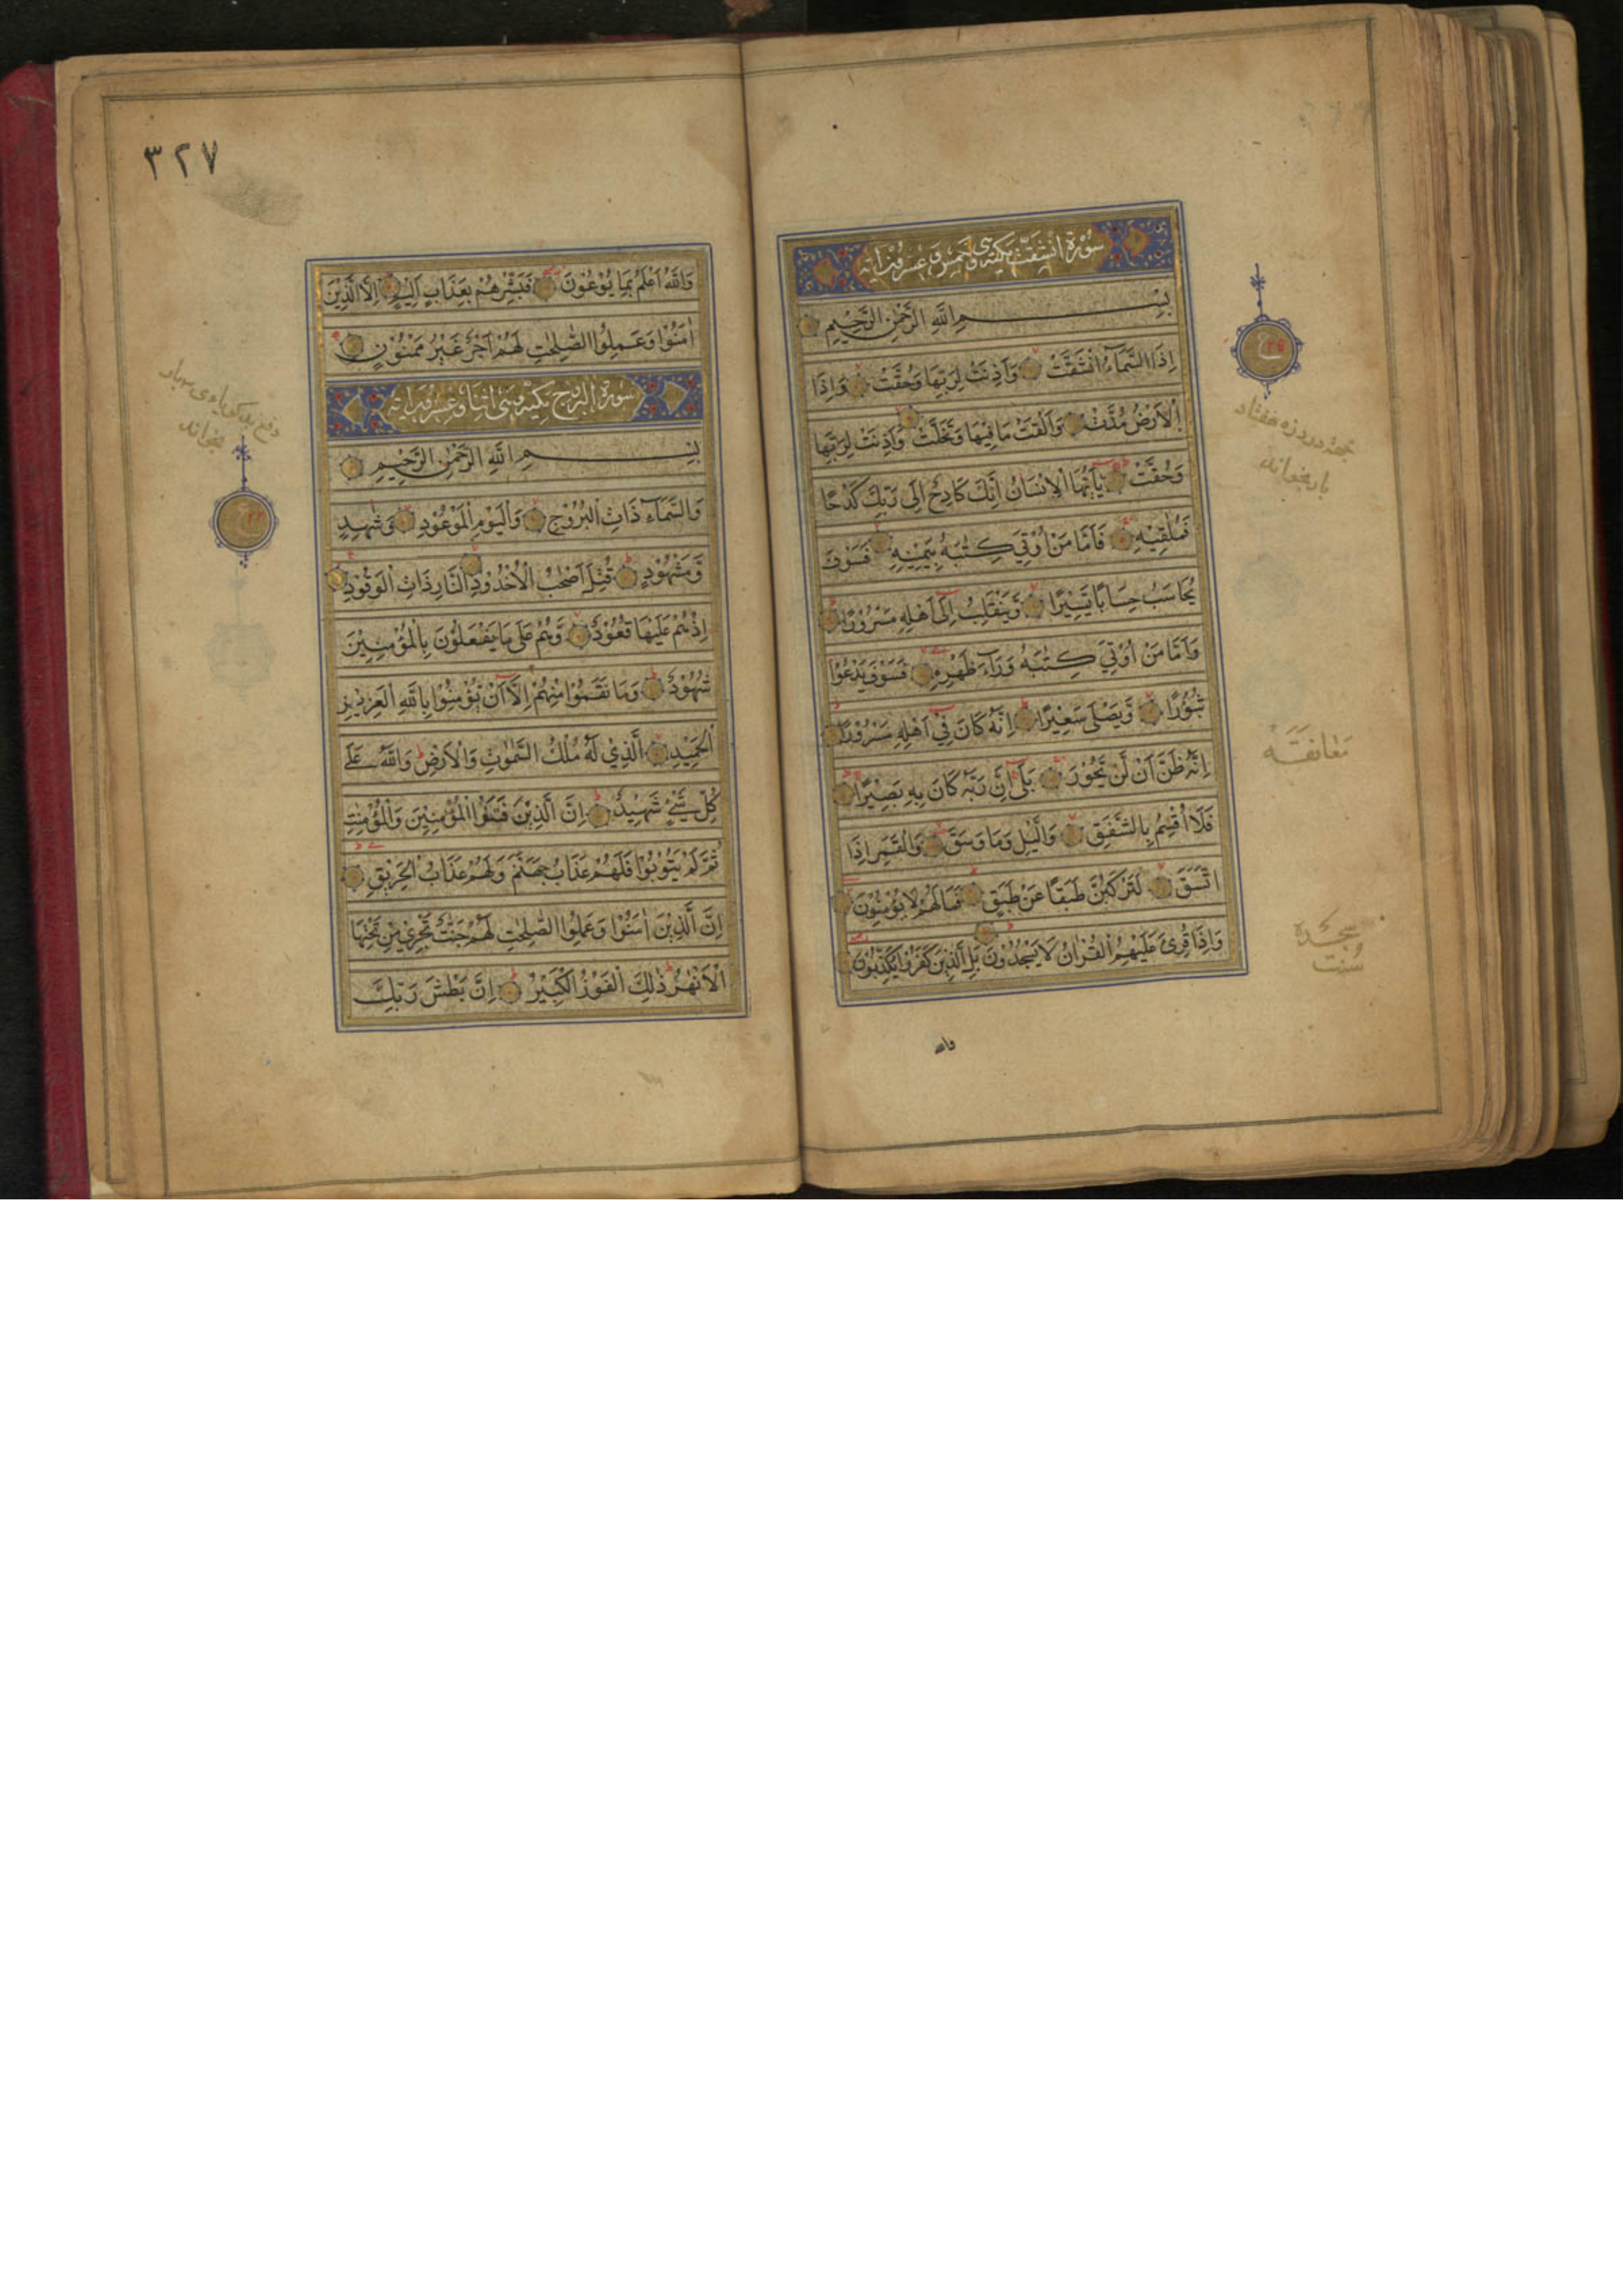 سُوْرَةُ انْشَقَّتْ مَكِّيَّةٌ وَهِيَ خَمْسٌ وَعِشْرُوْنَ اٰيَة
بِسْمِ اللّٰهِ الرَّحْمٰنِ الرَّحِيْمِ
اِذَا السَّمَآءُ انْشَقَّتْ وَاَذِنَتْ لِرَبِّهَا وَحُقَّتْ وَاِذَا
الْاَرْضُ مُدَّتْ وَاَلْقَتْ مَا فِيْهَا وَتَخَلَّتْ وَاَذِنَتْ لِرَبِّهَا
وَحُقَّتْ يٰۤاَيُّهَا الْاِنْسَانُ اِنَّكَ كَادِحٌ اِلٰى رَبِّكَ كَدْحًا
فَمُلٰقِيْهِ فَاَمَّا مَنْ اُوْتِيَ كِتٰبَهٗ بِيَمِيْنِهٖ فَسَوْفَ
يُحَاسَبُ حِسَابًا يَّسِيْرًا وَّيَنْقَلِبُ اِلٰٓى اَهْلِهٖ مَسْرُوْرًا
وَاَمَّا مَنْ اُوْتِيَ كِتٰبَهٗ وَرَآءَ ظَهْرِهٖ فَسَوْفَ يَدْعُوْا
ثُبُوْرًا وَّيَصْلٰى سَعِيْرًا اِنَّهٗ كَانَ فِيْٓ اَهْلِهٖ مَسْرُوْرًا
اِنَّهٗ ظَنَّ اَنْ لَّنْ يَّحُوْرَ بَلٰٓى اِنَّ رَبَّهٗ كَانَ بِهٖ بَصِيْرًا
فَلَآ اُقْسِمُ بِالشَّفَقِ وَالَّيْلِ وَمَا وَسَقَ وَالْقَمَرِ اِذَا
اتَّسَقَ لَتَرْكَبُنَّ طَبَقًا عَنْ طَبَقٍ فَمَا لَهُمْ لَا يُؤْمِنُوْنَ
وَاِذَا قُرِئَ عَلَيْهِمُ الْقُرْاٰنُ لَا يَسْجُدُوْنَ بَلِ الَّذِيْنَ كَفَرُوْا يُكَذِّبُوْنَ
والله
بار بخواند
مَعَانقَه
سجدهٔ
و
سنت
٣٢٧
وَاللّٰهُ اَعْلَمُ بِمَا يُوْعُوْنَ فَبَشِّرْهُمْ بِعَذَابٍ اَلِيْمٍ اِلَّا الَّذِيْنَ
اٰمَنُوْا وَعَمِلُوا الصّٰلِحٰتِ لَهُمْ اَجْرٌ غَيْرُ مَمْنُوْنٍ
سُورة البروج مكيّة وهى اثنا وعشرون اٰية
بِسْمِ اللّٰهِ الرَّحْمٰنِ الرَّحِيْمِ
وَالسَّمَآءِ ذَاتِ الْبُرُوْجِ وَالْيَوْمِ الْمَوْعُوْدِ وَشَاهِدٍ
وَّمَشْهُوْدٍ قُتِلَ اَصْحٰبُ الْاُخْدُوْدِ النَّارِ ذَاتِ الْوَقُوْدِ
اِذْ هُمْ عَلَيْهَا قُعُوْدٌ وَّهُمْ عَلٰى مَا يَفْعَلُوْنَ بِالْمُؤْمِنِيْنَ
شُهُوْدٌ وَمَا نَقَمُوْا مِنْهُمْ اِلَّآ اَنْ يُّؤْمِنُوْا بِاللّٰهِ الْعَزِيْزِ
الْحَمِيْدِ الَّذِيْ لَهٗ مُلْكُ السَّمٰوٰتِ وَالْاَرْضِ وَاللّٰهُ عَلٰى
كُلِّ شَيْءٍ شَهِيْدٌ اِنَّ الَّذِيْنَ فَتَنُوا الْمُؤْمِنِيْنَ وَالْمُؤْمِنٰتِ
ثُمَّ لَمْ يَتُوْبُوْا فَلَهُمْ عَذَابُ جَهَنَّمَ وَلَهُمْ عَذَابُ الْحَرِيْقِ
اِنَّ الَّذِيْنَ اٰمَنُوْا وَعَمِلُوا الصّٰلِحٰتِ لَهُمْ جَنّٰتٌ تَجْرِيْ مِنْ تَحْتِهَا
الْاَنْهٰرُ ذٰلِكَ الْفَوْزُ الْكَبِيْرُ اِنَّ بَطْشَ رَبِّكَ
بخواند